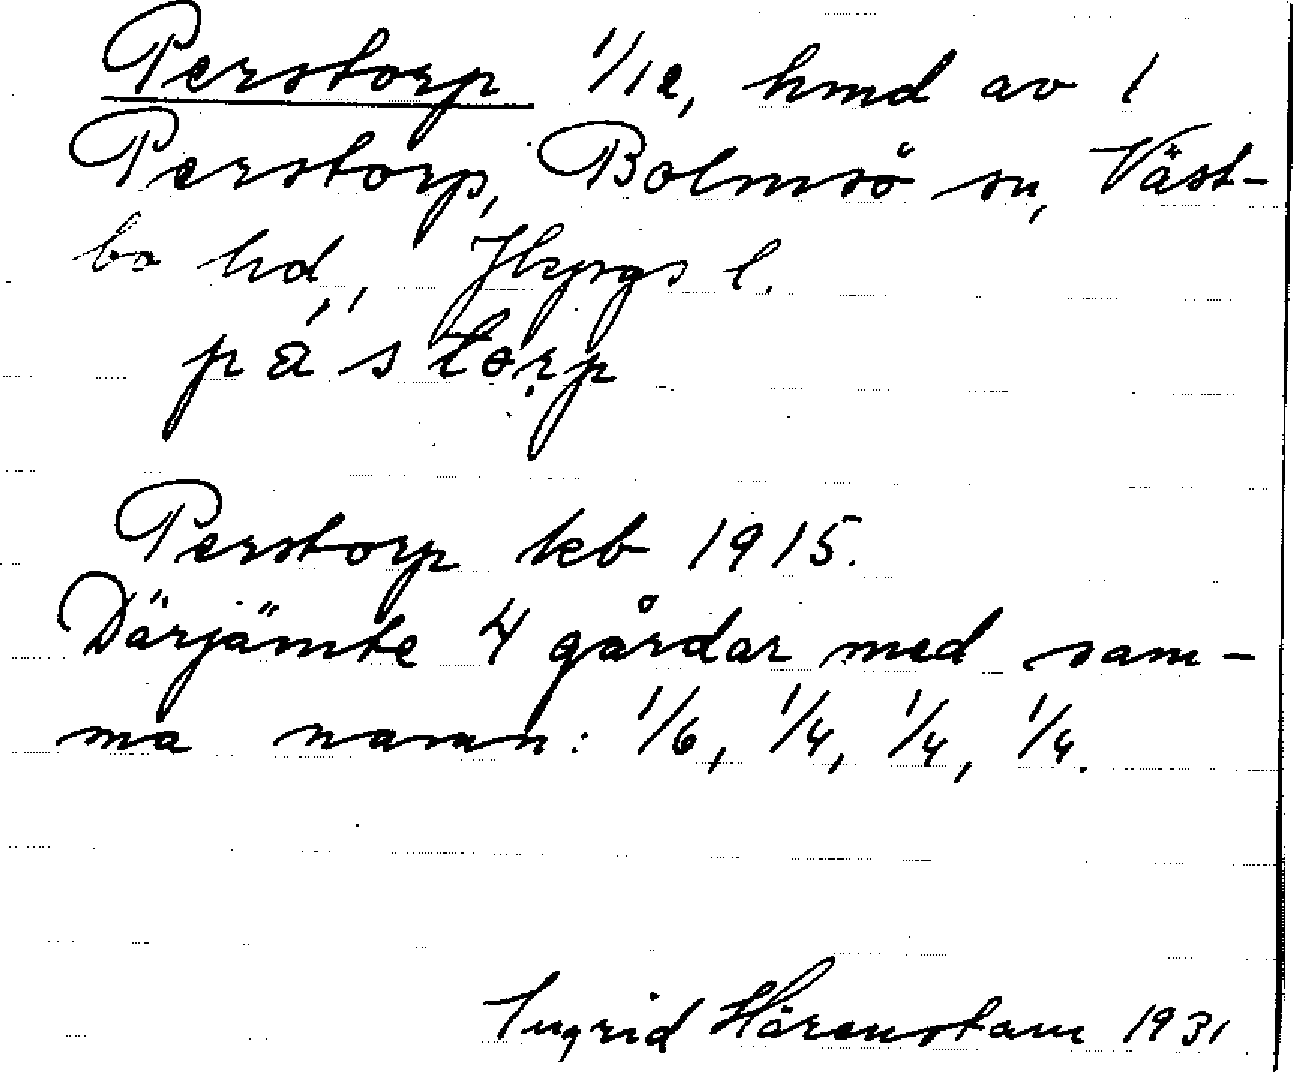 Perstorp 1/12, hmd av 1
Perstorp, Bolmsö sn, Väst-
bo hd, Jkpgs l.
pàstorp
Perstorp kb 1915.
Därjämte 4 gårdar med sam-
ma namn: 1/6, 1/4, 1/4, 1/4.
Ingrid Härenstam 1931